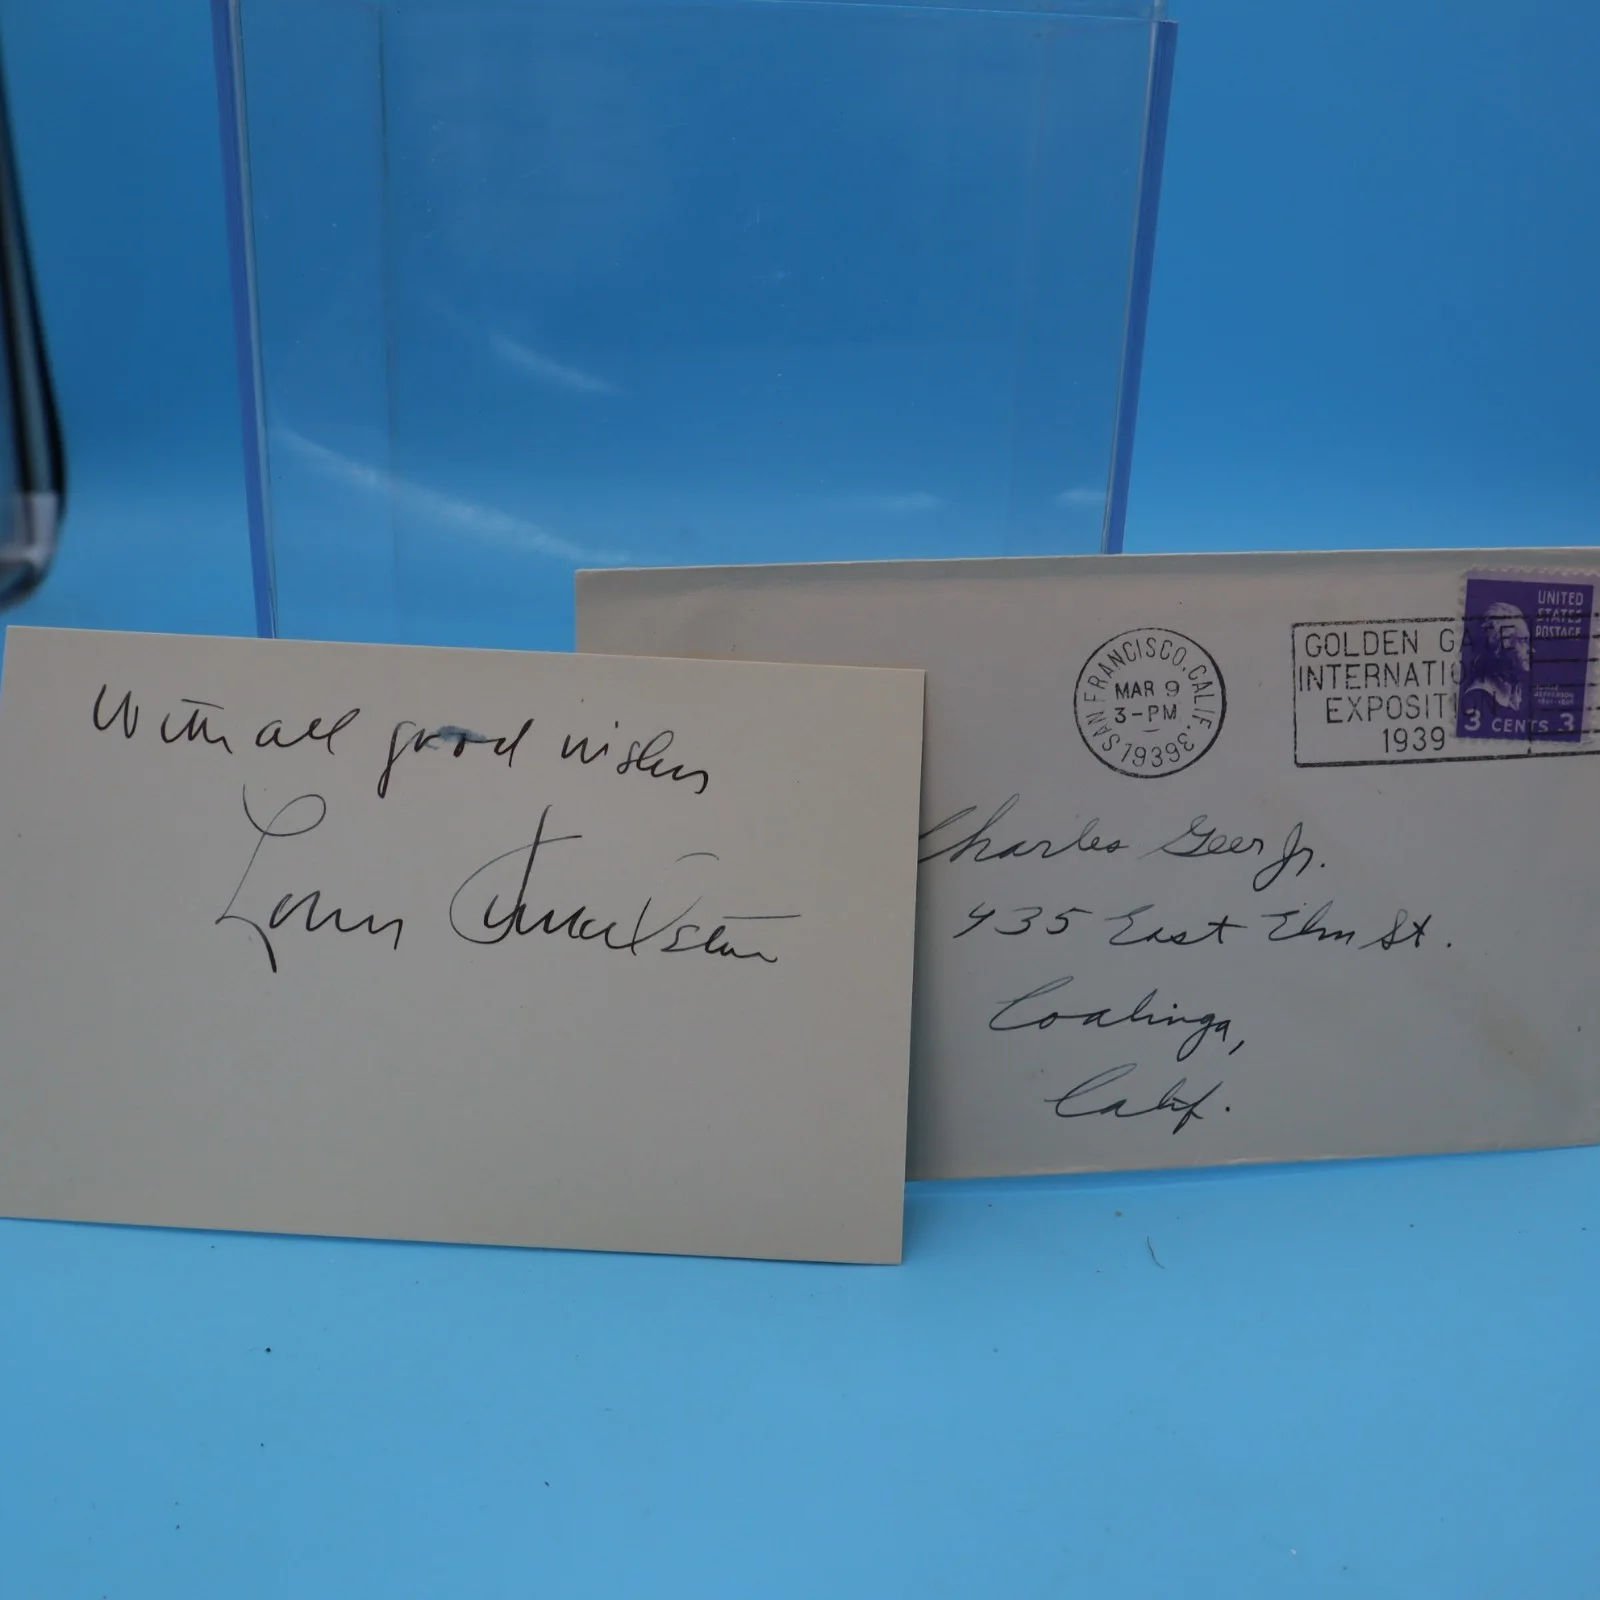 With all good wishes
SAN FRANCISCO, CALIF.
MAR 9
3-PM
1939
GOLDEN GATE
INTERNATIO
EXPOSITI
1939
UNITED
STATES
POSTAGE
3 CENTS 3
Charles Geer Jr.
435 East Elm St.
Coalinga,
Calif.